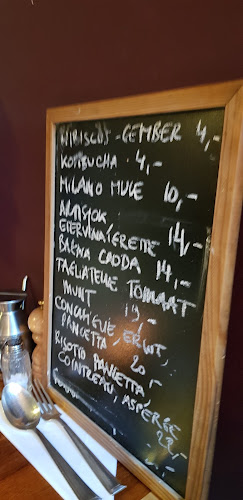 HIBISCUS-GEMBER 4,-
KOMBUCHA 4,-
MILANO MULE 10,-
ARTISJOK
GREMOLATA 14,-
BAGNA CAODA 14,-
TAGLIATELLE TOMAAT
MUNT 19,-
CONCHIGLIE, ERWT,
PANCETTA 20,-
RISOTTO PANCETTA,
COINTREAU, ASPERGE
22,-